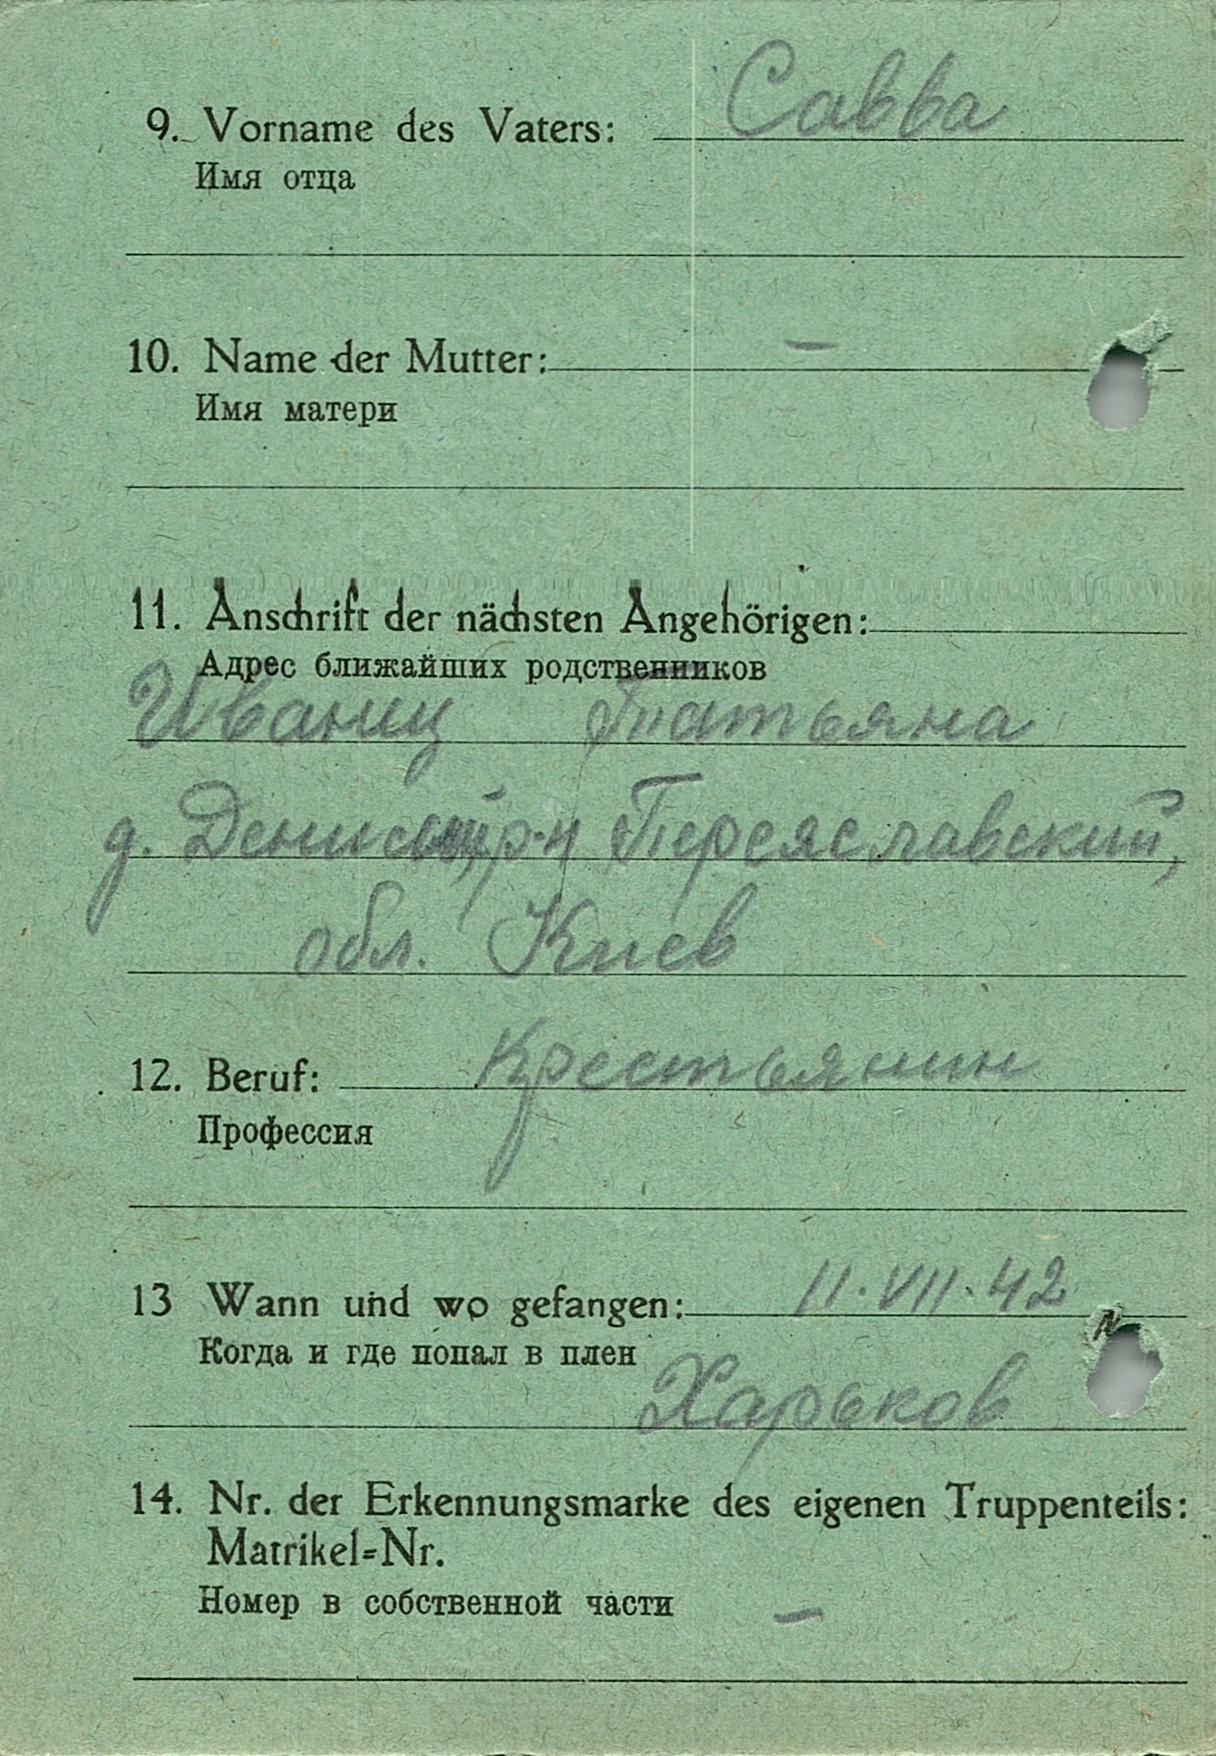 9. Vorname des Vaters: Савва
Имя отца
10. Name der Mutter: –
Имя матери
11. Anschrift der nächsten Angehörigen:
Адрес ближайших родственников
Иваниц Татьяна
д. р-н Переяславский,
обл. Киев
12. Beruf: Крестьянин
Профессия
13 Wann und wo gefangen: 11.VII.42
Когда и где попал в плен
Харьков
14. Nr. der Erkennungsmarke des eigenen Truppenteils:
Matrikel-Nr.
Номер в собственной части –